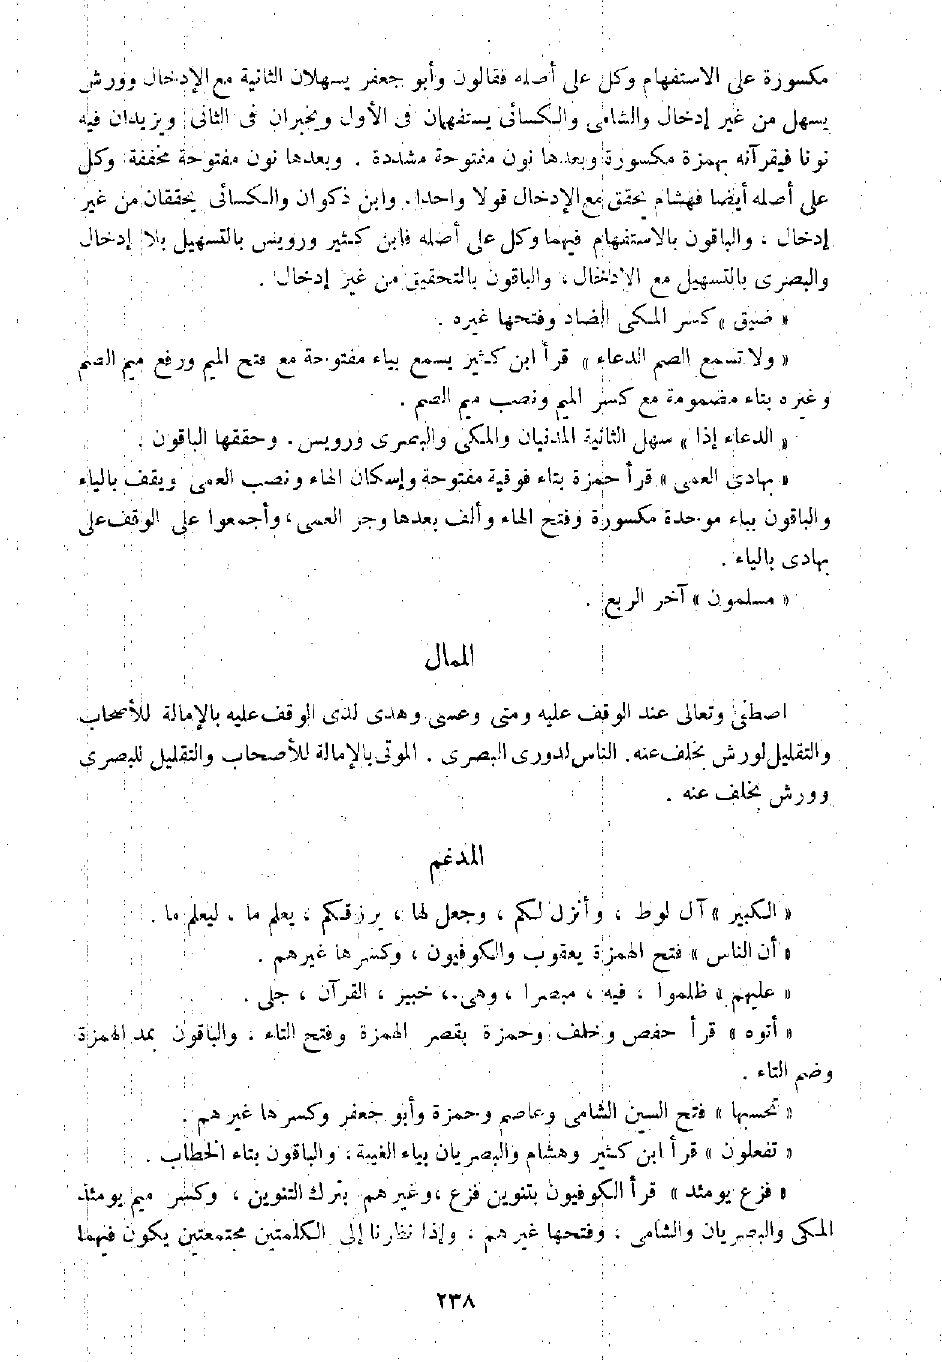 مكسورة على الاستفهام وكل على أصله فقالون وأبو جعفر يسهلان الثانية مع الإدخال وورش
يسهل من غير إدخال والشامى والكسائى يستفهمان فى الأول ويخبران فى الثانى ويزيدان فيه
نونا فيقرآنه بهمزة مكسورة وبعدها نون مفتوحة مشددة . وبعدها نون مفتوحة مخففة وكل
على أصله أيضا فهشام يحقق مع الإدخال قولا واحدا. وابن ذكوان والكسائى يحققان من غير
إدخال ، والباقون بالاستفهام فيهما وكل على أصله فابن كثير ورويس بالتسهيل بلا إدخال
والبصرى بالتسهيل مع الإدخال ، والباقون بالتحقيق من غير إدخال .
« ضيق » كسر المكى الضاد وفتحها غيره .
« ولا تسمع الصم الدعاء » قرأ ابن كثير يسمع بياء مفتوحة مع فتح الميم ورفع ميم الصم
وغيره بتاء مضمومة مع كسر الميم ونصب ميم الصم .
« الدعاء إذا » سهل الثانية المدنيان والمكى والبصرى ورويس. وحققها الباقون .
« بهادى العمى » قرأ حمزة بتاء فوقية مفتوحة وإسكان الهاء ونصب العمى ويقف بالياء
والباقون بباء موحدة مكسورة وفتح الهاء وألف بعدها وجر العمى ، وأجمعوا على الوقف على
بهادى بالياء .
« مسلمون » آخر الربع .
الممال
اصطفى وتعالى عند الوقف عليه ومتى وعسى وهدى لدى الوقف عليه بالإمالة للأصحاب
والتقليل لورش بخلف عنه. الناس لدورى البصرى . الموتى بالإمالة للأصحاب والتقليل للبصرى
وورش بخلف عنه .
المدغم
« الكبير » آل لوط ، وأنزل لكم ، وجعل لها ، يرزقكم ، يعلم ما ، ليعلم ما .
« أن الناس » فتح الهمزة يعقوب والكوفيون ، وكسرها غيرهم .
« عليهم » ظلموا ، فيه ، مبصرا ، وهى ، خبير ، القرآن ، جلى .
« أتوه » قرأ حفص وخلف وحمزة بقصر الهمزة وفتح التاء ، والباقون بمد الهمزة
وضم التاء .
« تحسبها » فتح السين الشامى وعاصم وحمزة وأبو جعفر وكسرها غيرهم .
« تفعلون » قرأ ابن كثير وهشام والبصريان بياء الغيبة ، والباقون بتاء الخطاب .
« فزع يومئذ » قرأ الكوفيون بتنوين فزع ، وغيرهم بترك التنوين ، وكسر ميم يومئذ
المكى والبصريان والشامى ، وفتحها غيرهم ، وإذا نظرنا إلى الكلمتين مجتمعتين يكون فيهما
٢٣٨